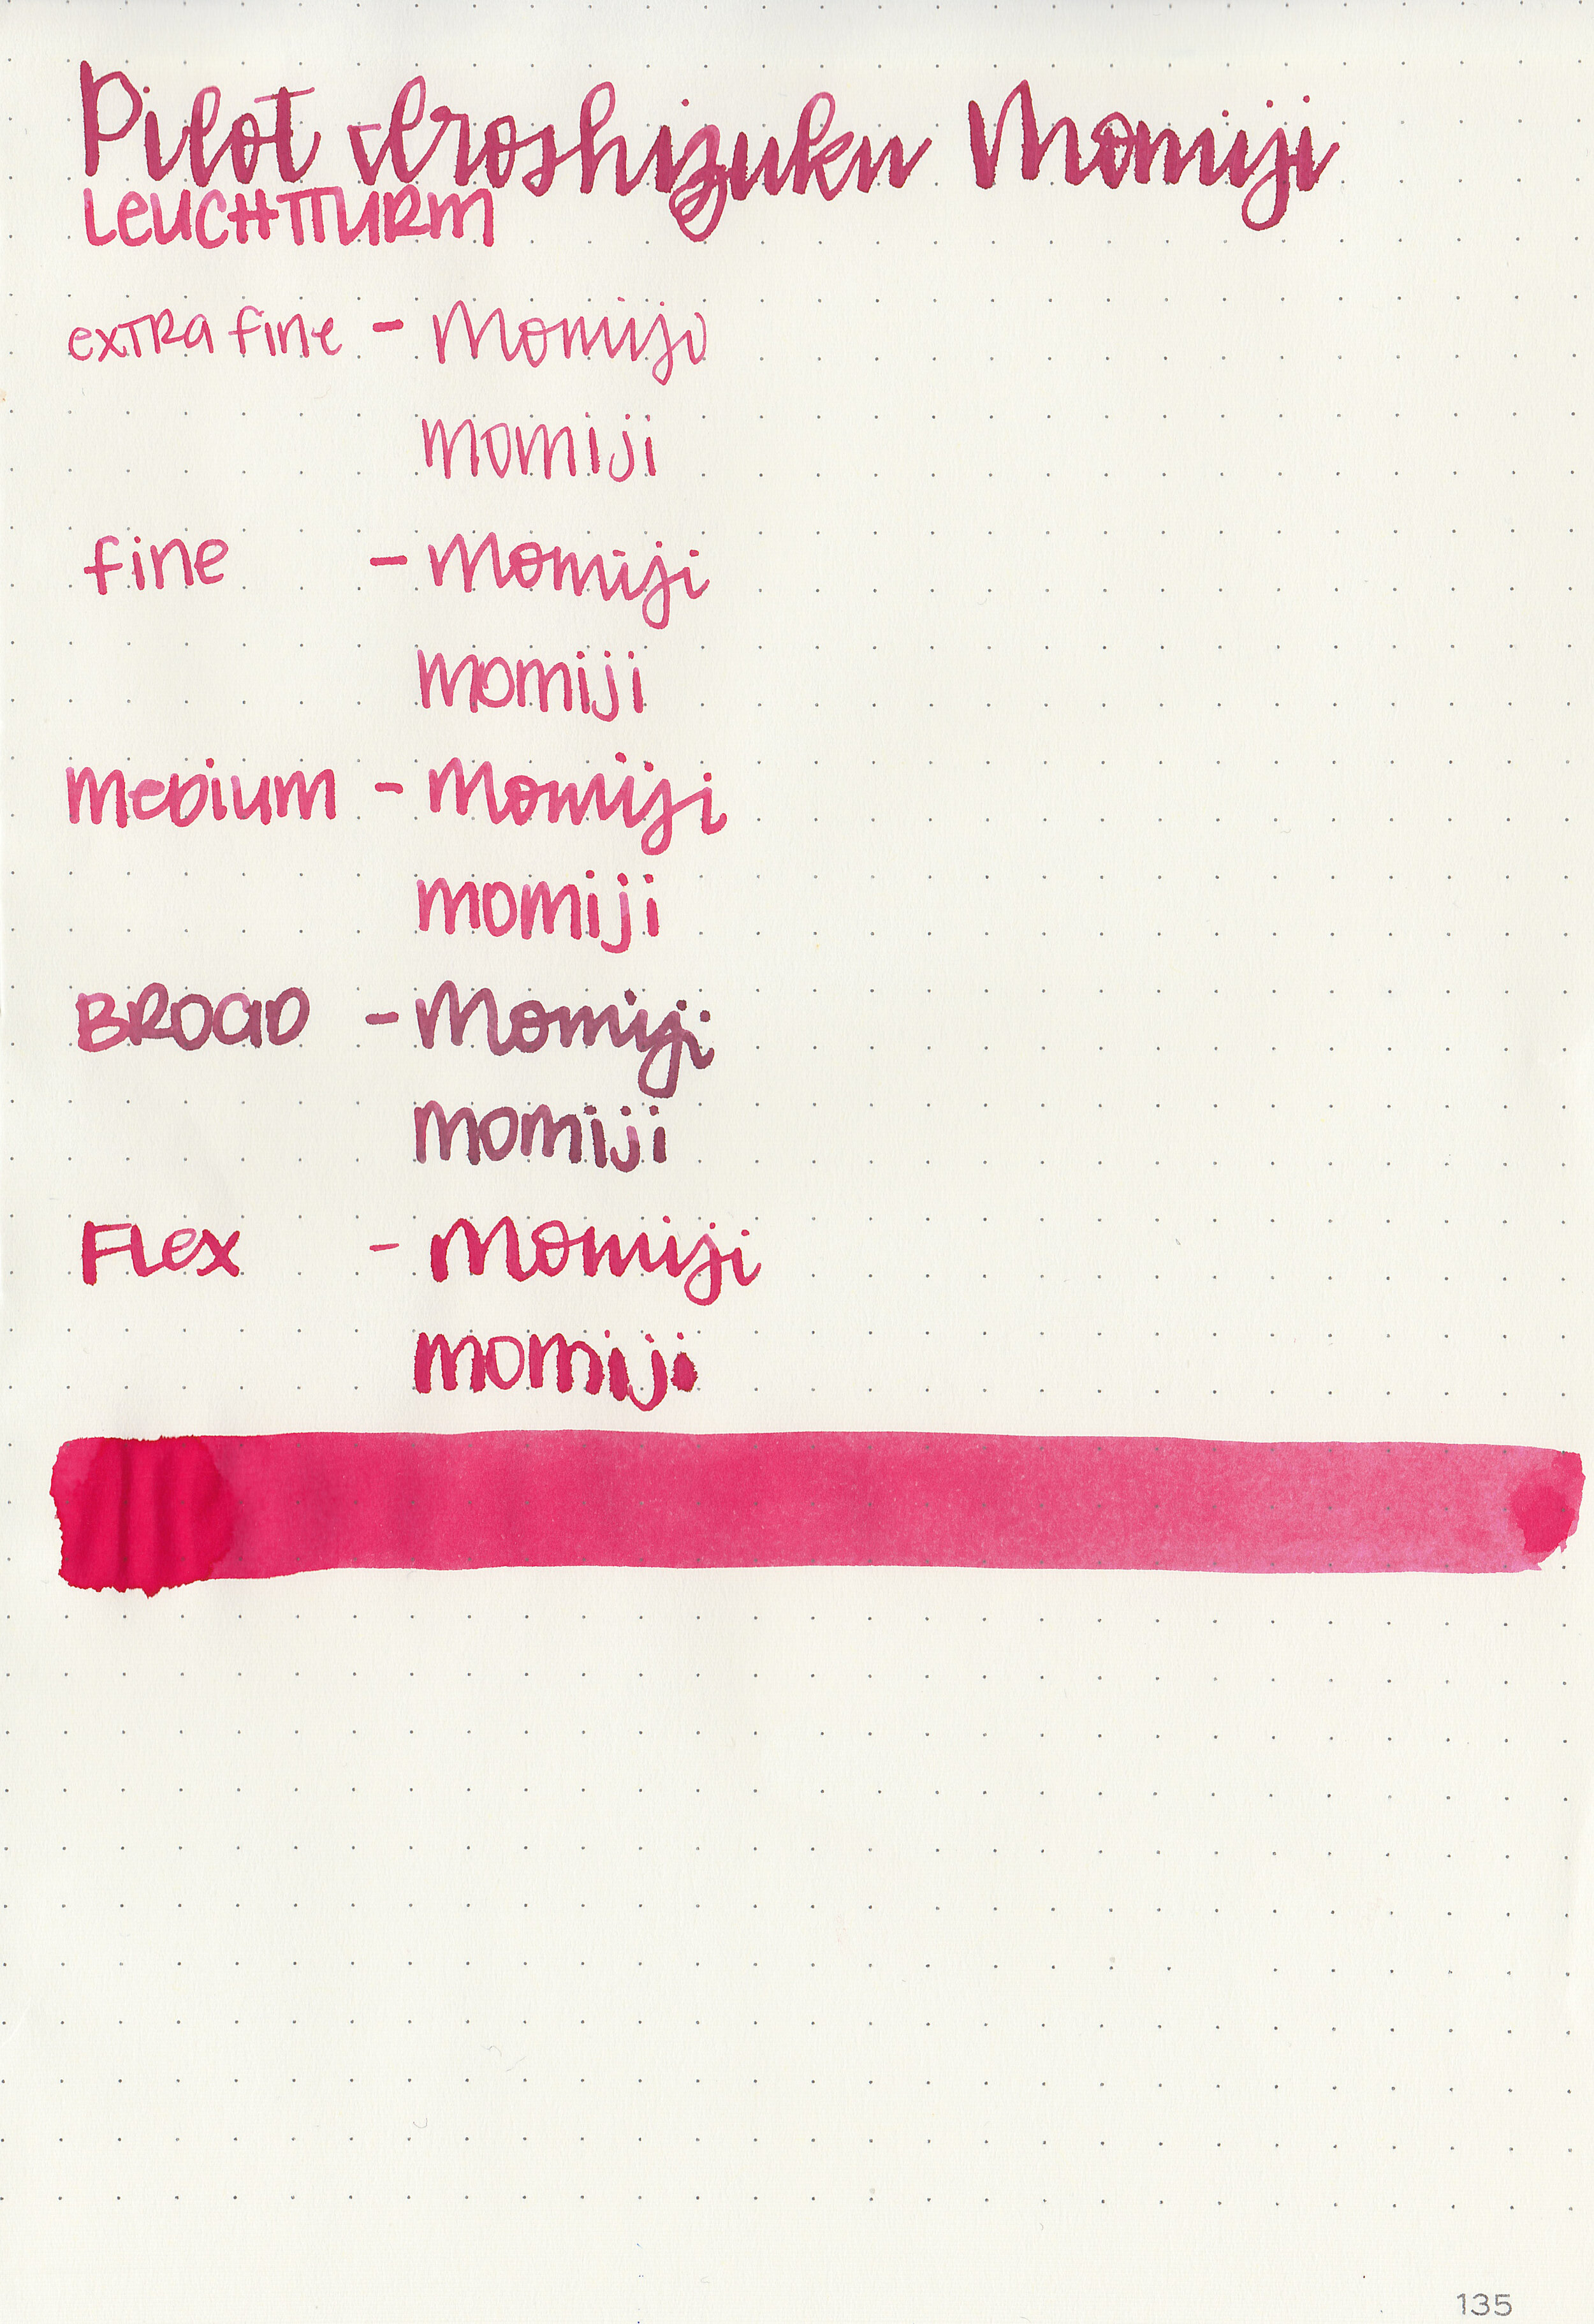 Pilot Iroshizuku Momiji
LEUCHTTURM
exTRa fine - Momiji
momiji
fine - Momiji
momiji
MeDium - Momiji
momiji
BROaD - Momiji
momiji
FLex - Momiji
momiji
135